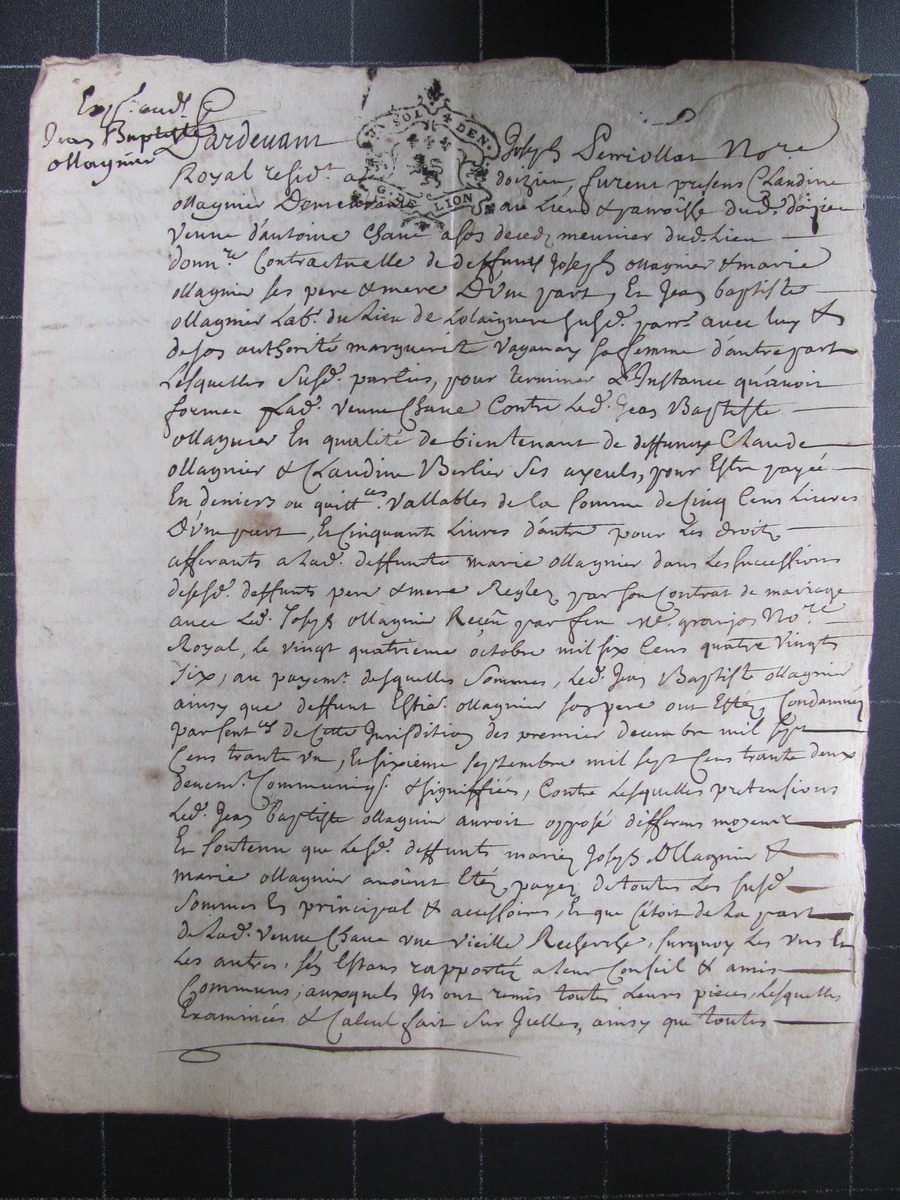 Exp.é aud.
Jean Baptiste
ollagnier
UN SOL 4 DEN.
G. DE LION
Pardevant Joseph Perriollat No.re
Royal resid.t a doizieu, furent presens Claudine
ollagnier Demeurant au Lieu & parroisse dud. doizieu
veuve d'antoine Chave a son deced meunier dud. Lieu
donn.re Contractuelle de deffunts Joseph ollagnier & marie
ollagnier ses pere & mere D'une part, Et Jean baptiste
ollagnier Lab.r du Lieu de susd. parr.e avec luy &
de son authorité marguerite vaganay sa femme d'autre part
Lesquelles Susd. parties, pour terminer L'Instance qu'avoit
formee Lad. veuve Chave Contre Led. Jean Baptiste
ollagnier En qualité de bientenant de deffunts Claude
ollagnier & Claudine Berlier ses ayeuls, pour Estre payée
En deniers ou quitt.ces vallables de la somme de Cinq Cens Livres
D'une part, Et Cinquante Livres d'autre pour Les droits
afferants a Lad. deffunte marie ollagnier dans Les successions
desesd. deffunts pere & mere Reglez par son Contrat de mariage
avec Led. Joseph ollagnier Receu par feu M.e granjon No.re
Royal, Le vingt quatrieme octobre mil six Cens quatre vingts
six, au payem.t desquelles sommes, Led. Jean Baptiste ollagnier
ainsy que deffunt ollagnier son pere ont Estés Condamnés
par sent.ces de Cette Jurisdition des premier decembre mil sept
Cens trante un, Et sixieme septembre mil sept Cens trante deux
deuem.t Communiq. & signiffiées, Contre Lesquelles pretensions
Led. Jean Baptiste ollagnier auroit opposé differens moyens
Et soutenu que Lesd. deffunts mariez Joseph ollagnier &
marie ollagnier avoint Etés payez de toutes Les susd.
sommes En principal & accessoires, Et que C'étoit de La part
de Lad. veuve Chave une vieille Recherche, surquoy Les uns Et
Les autres, s'en Estans rapportéz a leur Conseil & amis
Communs, auxquels Ils ont remis toutes Leurs pieces, Lesquelles
Examinées & Calcul fait sur Icelles, ainsy que toutes